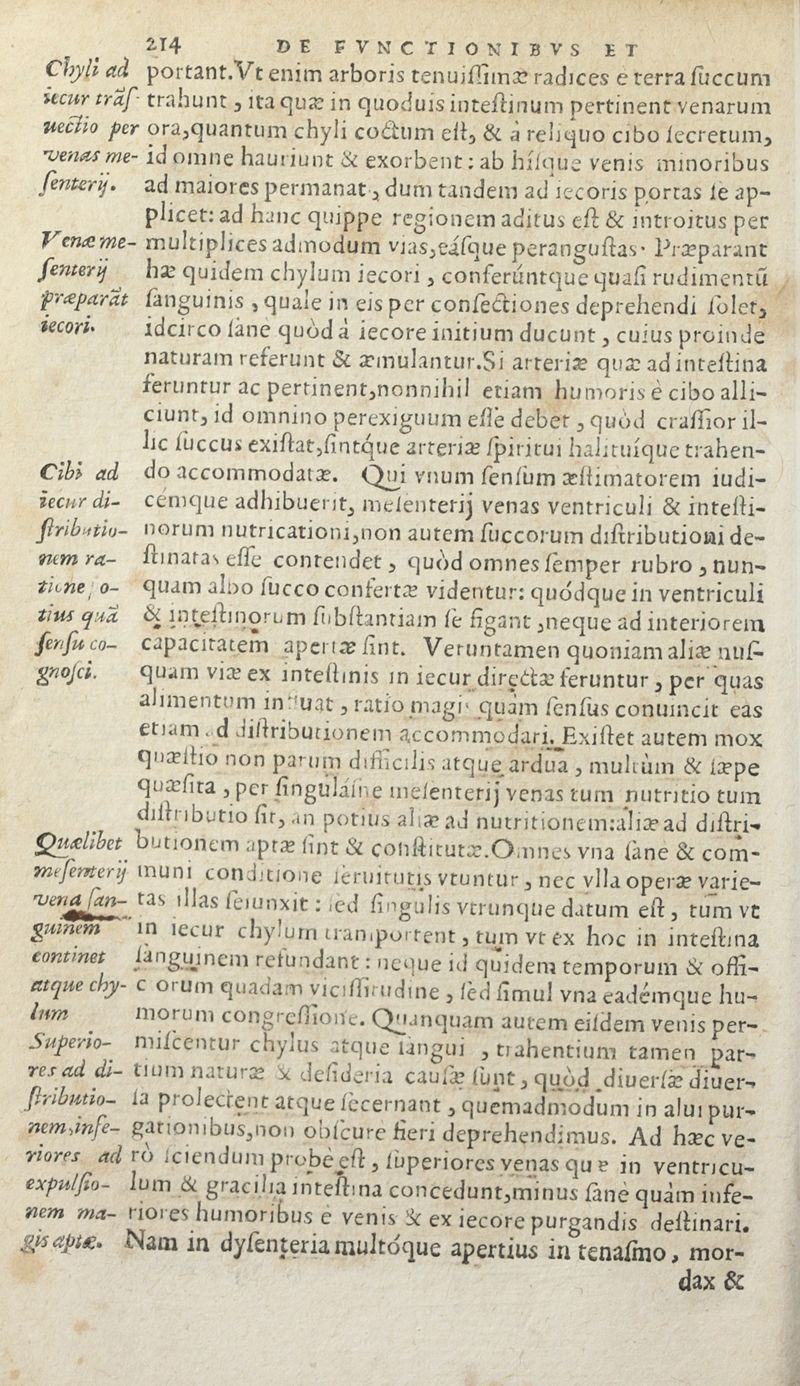 214 DE FVNCTIONIBVS ET
Chyli ad
iecur trãſ-
uectio per
venas me-
ſenterij.
Venæ me-
ſenterij
præparãt
iecori.
Cibi ad
iecur di-
ſtributio-
nem ra-
tione, o-
tius quã
ſenſu co-
gnoſci.
Quælibet
meſenterij
vena ſan-
guinem
continet
atque chy-
lum
Superio-
res ad di-
ſtributio-
nem, infe-
riores ad
expulſio-
nem ma-
gis aptæ.
portant. Vt enim arboris tenuiſſimæ radices e terra ſuccum
trahunt, ita quæ in quoduis inteſtinum pertinent venarum
ora, quantum chyli coctum eſt, & à reliquo cibo ſecretum,
id omne hauriunt & exorbent: ab hiſque venis minoribus
ad maiores permanat, dum tandem ad iecoris portas ſe ap-
plicet: ad hanc quippe regionem aditus eſt & introitus per
multiplices admodum vias, eáſque peranguſtas. Præparant
hæ quidem chylum iecori, conferúntque quaſi rudimentū
ſanguinis, quale in eis per confectiones deprehendi ſolet,
idcirco ſane quòd à iecore initium ducunt, cuius proinde
naturam referunt & æmulantur. Si arteriæ quæ ad inteſtina
feruntur ac pertinent, nonnihil etiam humoris è cibo alli-
ciunt, id omnino perexiguum eſſe debet, quòd craſſior il-
lic ſuccus exiſtat, ſintque arteriæ ſpiritui halituíque trahen-
do accommodatæ. Qui vnum ſenſum æſtimatorem iudi-
cémque adhibuerit, meſenterij venas ventriculi & inteſti-
norum nutricationi, non autem ſuccorum diſtributioni de-
ſtinatas eſſe contendet, quòd omnes ſemper rubro, nun-
quam albo ſucco confertæ videntur: quódque in ventriculi
& inteſtinorum ſubſtantiam ſe figant, neque ad interiorem
capacitatem apertæ ſint. Veruntamen quoniam aliæ nuſ-
quam viæ ex inteſtinis in iecur directæ feruntur, per quas
alimentum influat, ratio magis quàm ſenſus conuincit eas
etiam ad diſtributionem accommodari. Exiſtet autem mox
quæſtio non parum difficilis atque ardua, multùm & ſæpe
quæſita, per ſingulaſne meſenterij venas tum nutritio tum
diſtributio fit, an potius aliæ ad nutritionem: aliæ ad diſtri-
butionem aptæ ſint & conſtitutæ. Omnes vna ſane & com-
muni conditione ſeruitutis vtuntur, nec vlla operæ varie-
tas illas ſeiunxit: ſed ſingulis vtrunque datum eſt, tùm vt
in iecur chylum tranſportent, tum vt ex hoc in inteſtina
ſanguinem refundant: neque id quidem temporum & offi-
ciorum quadam viciſſitudine, ſed ſimul vna eadémque hu-
morum congreſſione. Quanquam autem eiſdem venis per-
miſcentur chylus atque ſangui , trahentium tamen par-
tium naturæ & deſideria cauſæ ſunt, quòd diuerſæ diuer-
ſa prolectent atque ſecernant, quemadmodum in alui pur-
gationibus, non obſcure fieri deprehendimus. Ad hæc ve-
rò ſciendum probè eſt, ſuperiores venas quæ in ventricu-
lum & gracilia inteſtina concedunt, minus ſanè quàm infe-
riores humoribus è venis & ex iecore purgandis deſtinari.
Nam in dyſenteria multóque apertius in tenaſmo, mor-
dax &